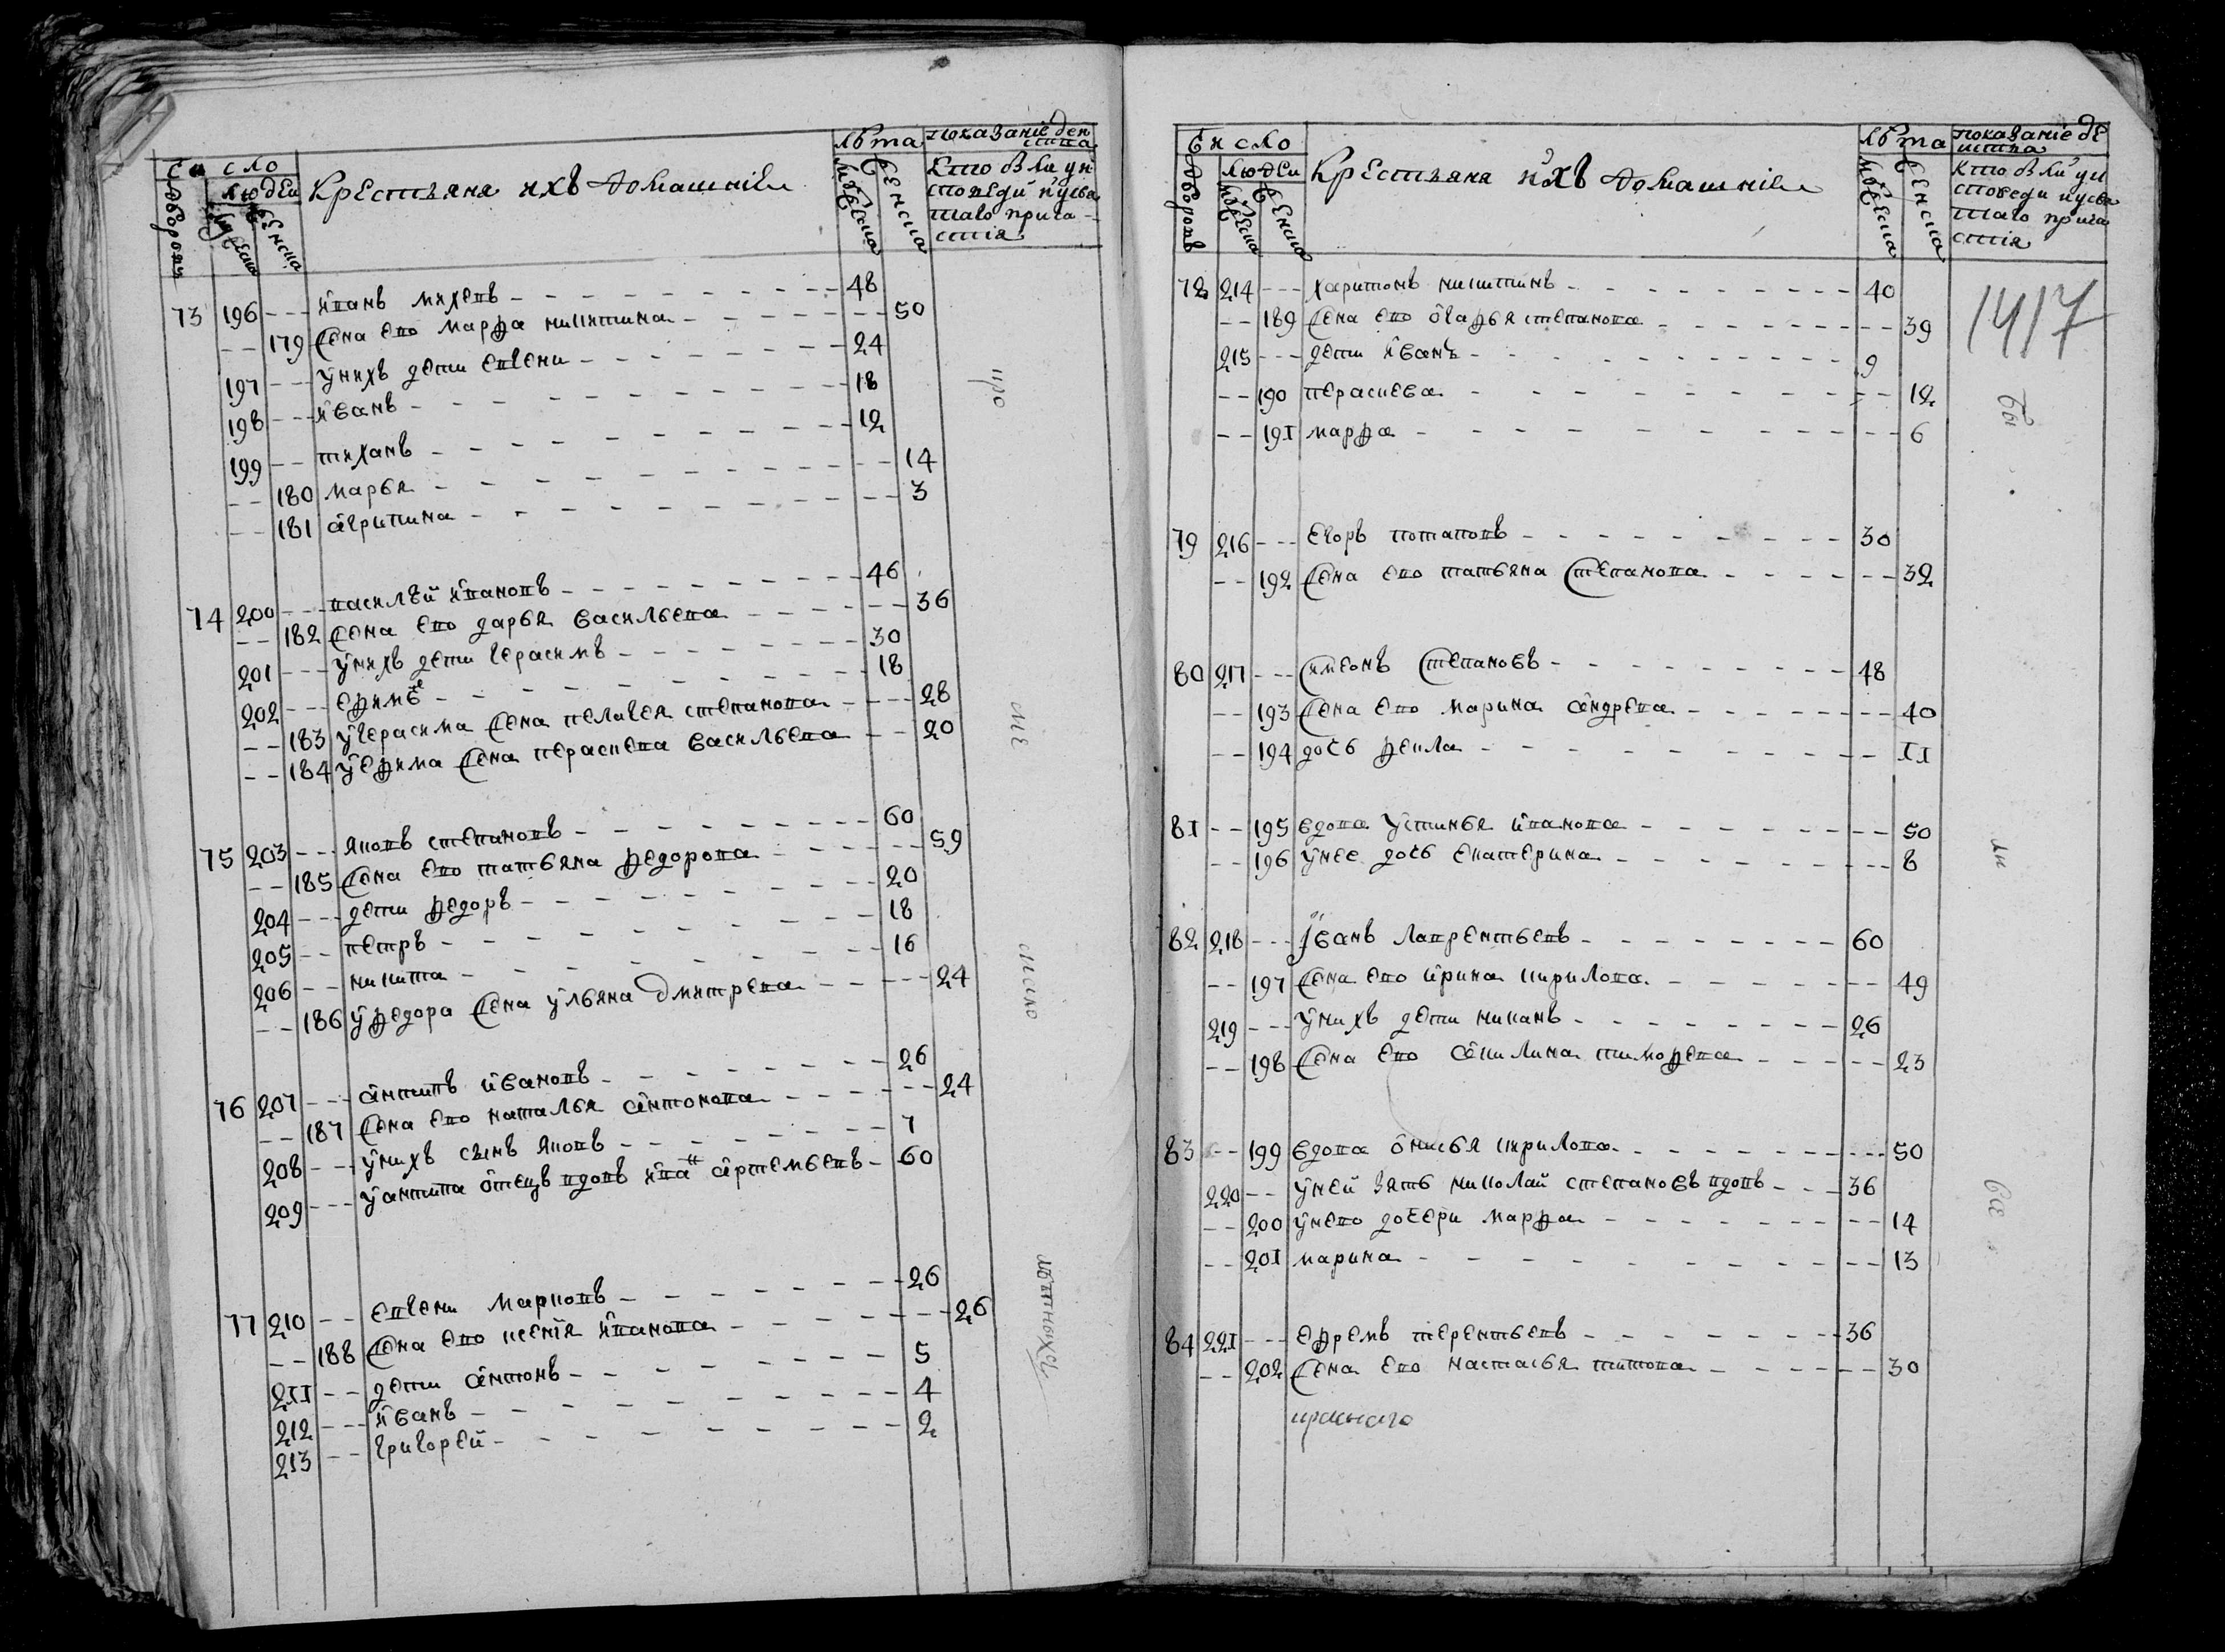 Число
Дворовъ
людеи
мужеска
женска
Крестьяня ихъ домашнии
лѣта
мужеска
женска
показание действа
кто былъ у исповеди и у святаго причастия
73 196 --- иванъ михеевъ - - - 48
-- 179 жена ево марфа никитина - - - 50
197 --- у нихъ дети евгени - - - 24
198 --- иванъ - - - 18
199 --- тиханъ - - - 12
-- 180 марья - - - 14
-- 181 агрипина - - - 3
74 200 --- василѣй ивановъ - - - 46
-- 182 жена ево дарья васильева - - - 36
201 --- у нихъ дети герасимъ - - - 30
202 --- ефимъ - - - 18
-- 183 у герасима жена пелагея степанова - - - 28
-- 184 у ефима жена параскева васильева - - 20
75 203 --- яковъ степановъ - - - 60
-- 185 жена ево татьяна федорова - - - 59
204 --- дети федоръ - - - 20
205 --- петръ - - - 18
206 -- никита - - - 16
-- 186 у федора жена ульяна дмитрева - - - 24
76 207 --- антипъ ивановъ - - - 26
-- 187 жена ево наталья антонова - - - 24
208 --- у нихъ сынъ яковъ - - - 7
209 --- у антипа отецъ вдовъ ива артемьевъ - 60
77 210 -- евгени марковъ - - - 26
-- 188 жена ево ксения иванова - - - 26
211 -- дети антонъ - - - 5
212 --- иванъ - - - 4
213 -- григорей - - - 2
Число
Дворовъ
людеи
мужеска
женска
Крестьяня ихъ домашнии
лѣта
мужеска
женска
показание действа
кто былъ у исповеди и у святаго причастия
1417
78 214 --- харитонъ никитинъ - - - 40
-- 189 жена ево агафья степанова - - - 39
215 --- дети иванъ - - - 9
-- 190 пераскева - - - 12
-- 191 марфа - - - 6
79 216 --- егоръ потаповъ - - - 30
-- 192 жена ево татьяна степанова - - - 32
80 217 --- симеонъ степановъ - - - 48
-- 193 жена ево марина андрева - - - 40
-- 194 дочь фекла - - - 11
81 -- 195 вдова устинья иванова - - - 50
-- 196 у нее дочь екатерина - - - 8
82 218 --- иванъ лаврентьевъ - - - 60
-- 197 жена ево ирина кирилова - - - 49
219 --- у нихъ дети никанъ - - - 26
-- 198 жена ево акилина тимофева - - - 23
83 -- 199 вдова онисья кирилова - - - 50
220 -- у ней зять николай степановъ вдовъ - - - 36
-- 200 у нево дочери марфа - - - 14
-- 201 марина - - - 13
84 221 --- ефремъ терентьевъ - - - 36
-- 202 жена ево настасья титова - - - 30
краснаго